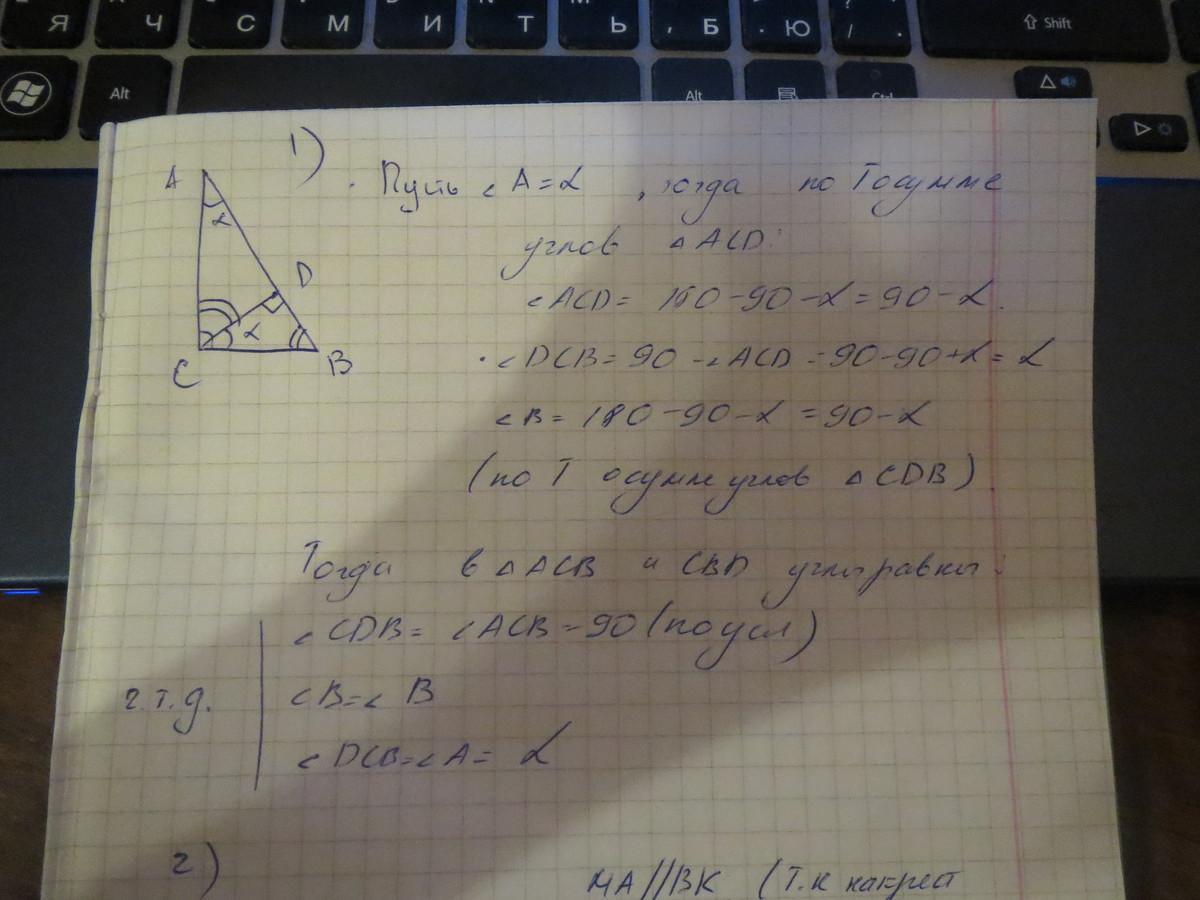 Я Ч С М И Т Ь , Б . Ю / . ⇧ Shift
Alt Alt Ctrl
1)
A
α
D
α
C
B
Пусть ∠A=α , тогда по Т о сумме
углов △ACD:
∠ACD= 180-90-α=90-α.
∠DCB=90-∠ACD=90-90+α=α
∠B=180-90-α=90-α
(по Т о сумме углов △CDB)
Тогда в △ACB и CBD углы равны:
∠CDB=∠ACB=90 (по усл)
ч.т.д.
∠B=∠B
∠DCB=∠A=α
2)
MA//BK (Т.к накрест